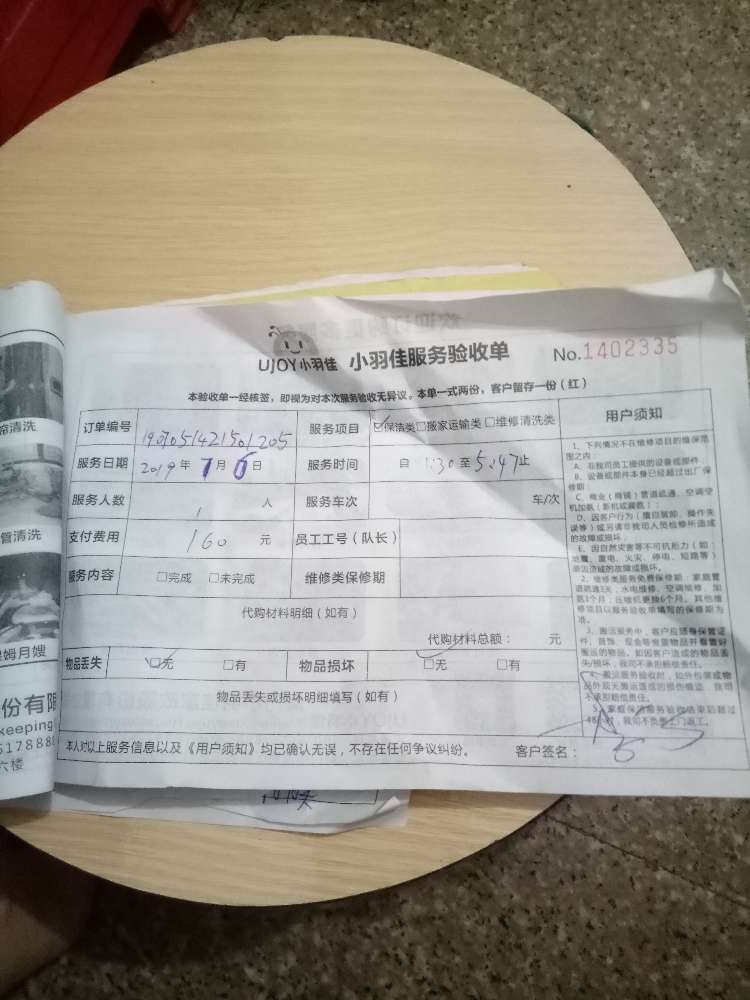 UJOY小羽佳 小羽佳服务验收单 No.1402335
本验收单一经核签，即视为对本次服务验收无异议。本单一式两份，客户留存一份（红）
订单编号 1907051421501205 服务项目 ☑保洁类□搬家运输类□维修清洗类
服务日期 2019年7月6日 服务时间 自1:30至5:47止
服务人数 1 人 服务车次 车/次
支付费用 160 元 员工工号（队长）
服务内容 □完成 □未完成 维修类保修期
代购材料明细（如有）
代购材料总额： 元
物品丢失 ☑无 □有 物品损坏 ☑无 □有
物品丢失或损坏明细填写（如有）
本人对以上服务信息以及《用户须知》均已确认无误，不存在任何争议纠纷。 客户签名：
用户须知
1、下列情况不在维修项目的维保范
围之内：
A、非我司员工提供的设备或部件
B、设备或部件本身已经超过出厂保
修期
C、商业（商铺）管道疏通、空调空
机加氨（新机或漏氨）；
D、因客户行为（擅自装卸、操作失
误等）或另请非我司人员检修所造成
的故障或损坏。
E、因自然灾害等不可抗拒力（如：
地震、雷电、火灾、停电、短路等）
原因造成的故障或损坏。
2、维修类服务免费保修期：家庭管
道疏通3天；水电维修、空调维修、加
氨1个月；压缩机更换6个月。其他维
修项目以服务验收单填写的保修期为
准。
3、搬运服务中，客户应随身保管证
件、首饰、现金等贵重物品并看管好
搬运的物品。如因客户造成的物品丢
失/损坏，我司不承担赔偿责任。
4、搬运服务验收时，如外包装或物
品外观无搬运造成的损伤痕迹，我司
不承担赔偿责任。
5、家庭保洁服务验收结束后超过
48小时，我司不负责上门返工。
清洗
管清洗
姆月嫂
份有限
keeping
517888
六楼